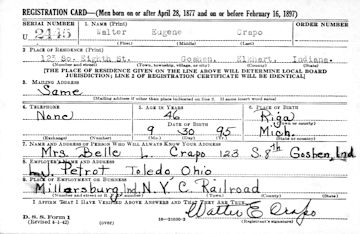 REGISTRATION CARD—(Men born on or after April 28, 1877 and on or before February 16, 1897)
SERIAL NUMBER 1. NAME (Print) ORDER NUMBER
U 2445 Walter Eugene Crapo
2. PLACE OF RESIDENCE (Print)
123 So. Eighth St. Goshen, Elkhart, Indiana.
(Number and street) (Town, township, village, or city) (County) (State)
[THE PLACE OF RESIDENCE GIVEN ON THE LINE ABOVE WILL DETERMINE LOCAL BOARD
JURISDICTION; LINE 2 OF REGISTRATION CERTIFICATE WILL BE IDENTICAL]
3. MAILING ADDRESS
Same
[Mailing address if other than place indicated on line 2. If same insert word same]
4. TELEPHONE 5. AGE IN YEARS 6. PLACE OF BIRTH
None 46 Riga
DATE OF BIRTH (Town or county)
9 30 95 Mich.
(Exchange) (Number) (Mo.) (Day) (Yr.) (State or country)
7. NAME AND ADDRESS OF PERSON WHO WILL ALWAYS KNOW YOUR ADDRESS
Mrs. Belle L. Crapo 123 S. 8th Goshen, Ind
8. EMPLOYER'S NAME AND ADDRESS
L. J. Petrot Toledo, Ohio
9. PLACE OF EMPLOYMENT OR BUSINESS
Millersburg Ind. N.Y.C. Railroad
(Number and street or R. F. D. number) (Town) (County) (State)
I AFFIRM THAT I HAVE VERIFIED ABOVE ANSWERS AND THAT THEY ARE TRUE.
Walter E Crapo
D. S. S. Form 1
(Revised 4-1-42) (over) (Registrant's signature)